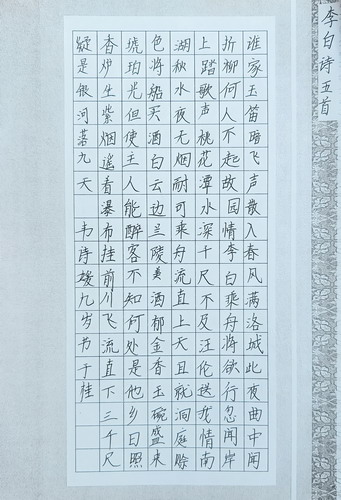 李白诗五首
谁家玉笛暗飞声散入春风满洛城此夜曲中闻
折柳何人不起故园情李白乘舟将欲行忽闻岸
上踏歌声桃花潭水深千尺不及汪伦送我情南
湖秋水夜无烟耐可乘舟流直上天且就洞庭赊
色将船买酒白云边兰陵美酒郁金香玉碗盛来
琥珀光但使主人能醉客不知何处是他乡日照
香炉生紫烟遥看瀑布挂前川飞流直下三千尺
疑是银河落九天 韦诗媛九岁书于桂